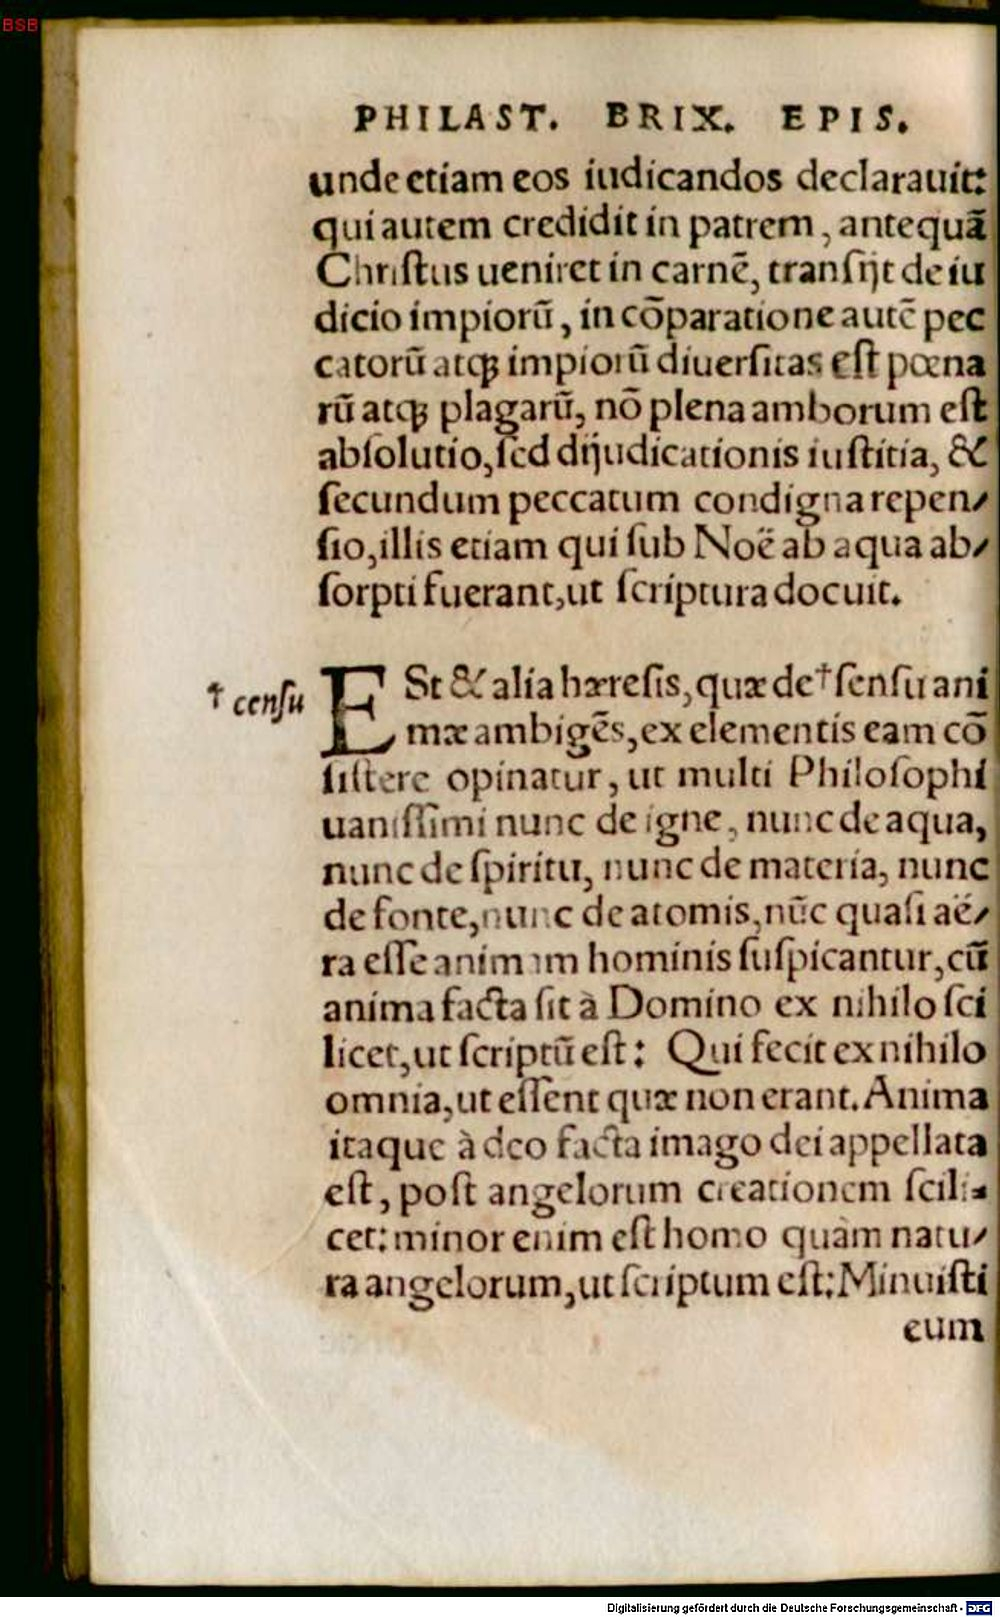 BSB
PHILAST. BRIX. EPIS.
unde etiam eos iudicandos declarauit:
qui autem credidit in patrem, antequã
Chriſtus ueniret in carnẽ, tranſijt de iu
dicio impiorũ, in cõparatione autẽ pec
catorũ atqꝫ impiorũ diuerſitas eſt pœna
rũ atqꝫ plagarũ, nõ plena amborum eſt
abſolutio, ſed dijudicationis iuſtitia, &
ſecundum peccatum condigna repen/
ſio, illis etiam qui ſub Noë ab aqua ab/
ſorpti fuerant, ut ſcriptura docuit.
† cenſu
ESt & alia hæreſis, quæ de † ſenſu ani
mæ ambigẽs, ex elementis eam cõ
ſiſtere opinatur, ut multi Philoſophi
uaniſſimi nunc de igne, nunc de aqua,
nunc de ſpiritu, nunc de materia, nunc
de fonte, nunc de atomis, nũc quaſi aë/
ra eſſe animam hominis ſuſpicantur, cũ
anima facta ſit à Domino ex nihilo ſci
licet, ut ſcriptũ eſt: Qui fecit ex nihilo
omnia, ut eſſent quæ non erant. Anima
itaque à deo facta imago dei appellata
eſt, poſt angelorum creationem ſcili/
cet: minor enim eſt homo quàm natu/
ra angelorum, ut ſcriptum eſt: Minuiſti
eum
Digitalisierung gefördert durch die Deutsche Forschungsgemeinschaft - DFG